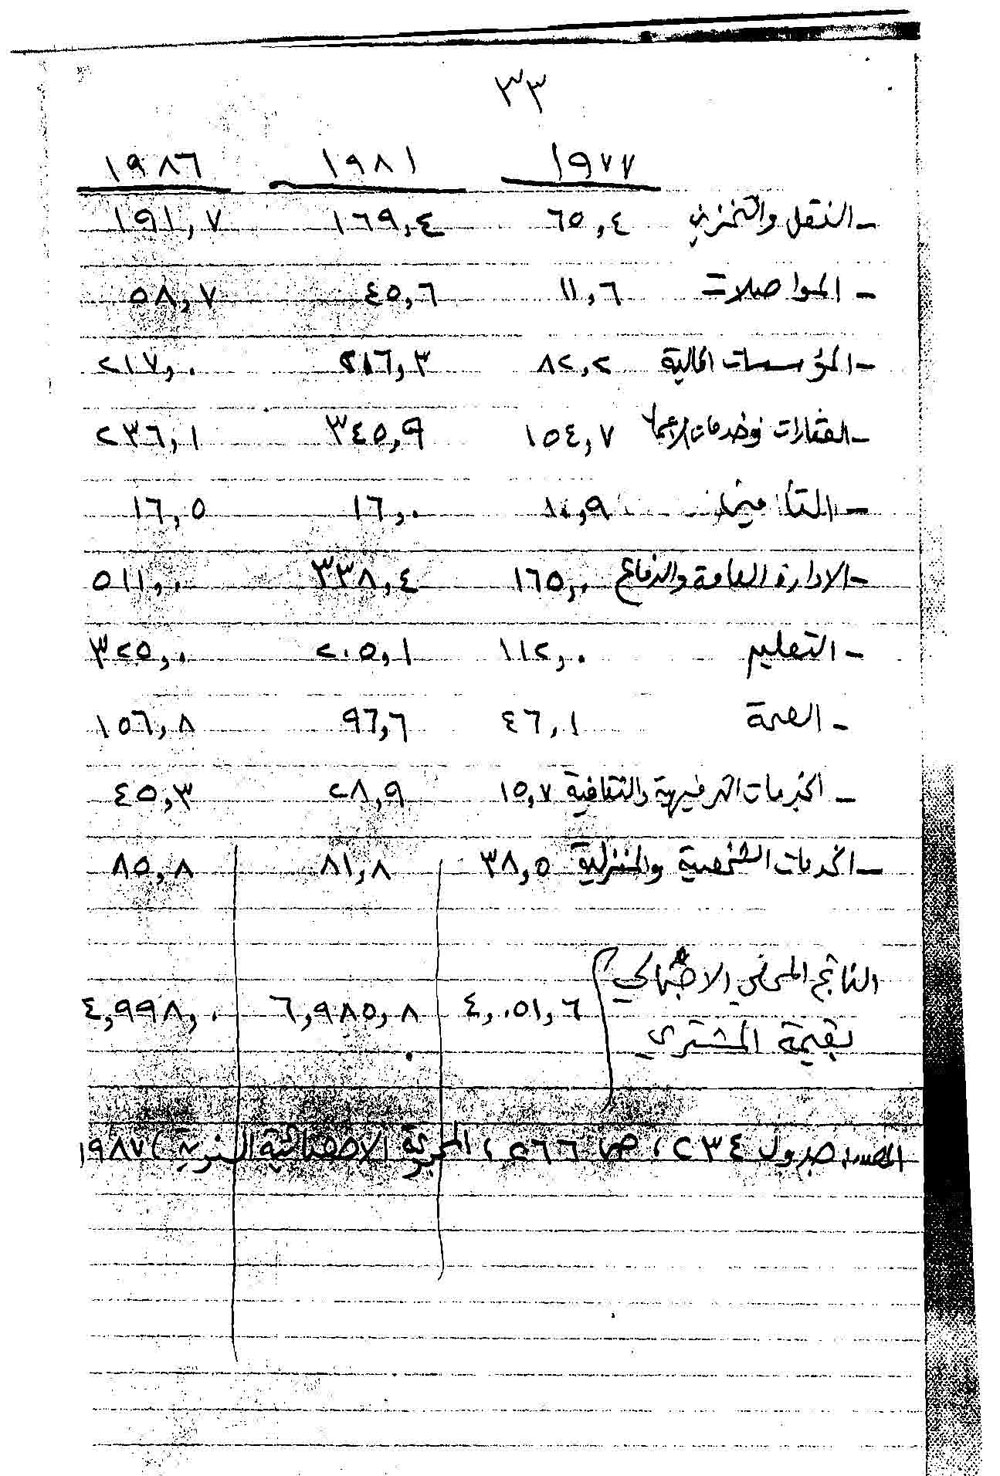 ٣٣
١٩٧٧ ١٩٨١ ١٩٨٦
- النقل والتخزين ٦٥,٤ ١٦٩,٤ ١٩١,٧
- المواصلات ١١,٦ ٤٥,٦ ٥٨,٧
- المؤسسات المالية ٨٢,٢ ٢١٦,٣ ٢١٧,٠
- العقارات وخدمات الأعمال ١٥٤,٧ ٣٤٥,٩ ٢٣٦,١
- التأمين ١٠,٩ ١٦,٠ ١٦,٥
- الادارة العامة والدفاع ١٦٥,٠ ٣٣٨,٤ ٥١١,٠
- التعليم ١١٢,٠ ٢٠٥,١ ٣٢٥,٠
- الصحة ٤٦,١ ٩٦,٦ ١٥٦,٨
- الخدمات الترفيهية والثقافية ١٥,٧ ٢٨,٩ ٤٥,٣
- الخدمات الشخصية والمنزلية ٣٨,٥ ٨١,٨ ٨٥,٨
الناتج المحلي الاجمالي ٤,٠٥١,٦ ٦,٩٨٥,٨ ٤,٩٩٨,٠
بقيمة المشتري
المصدر: جدول ٢٣٤، ص ٢٦٦، المجموعة الاحصائية السنوية، ١٩٨٧